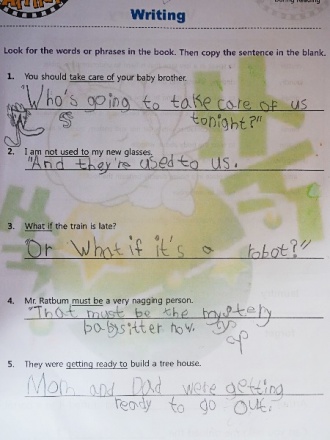 during reading
Writing
Look for the words or phrases in the book. Then copy the sentence in the blank.
1. You should take care of your baby brother.
"Who's going to take care of us
tonight?"
2. I am not used to my new glasses.
"And they're used to us.
3. What if the train is late?
"Or What if it's a robot?"
4. Mr. Ratbum must be a very nagging person.
"That must be the mystery
babysitter now.
5. They were getting ready to build a tree house.
Mom and Dad were getting
ready to go out.